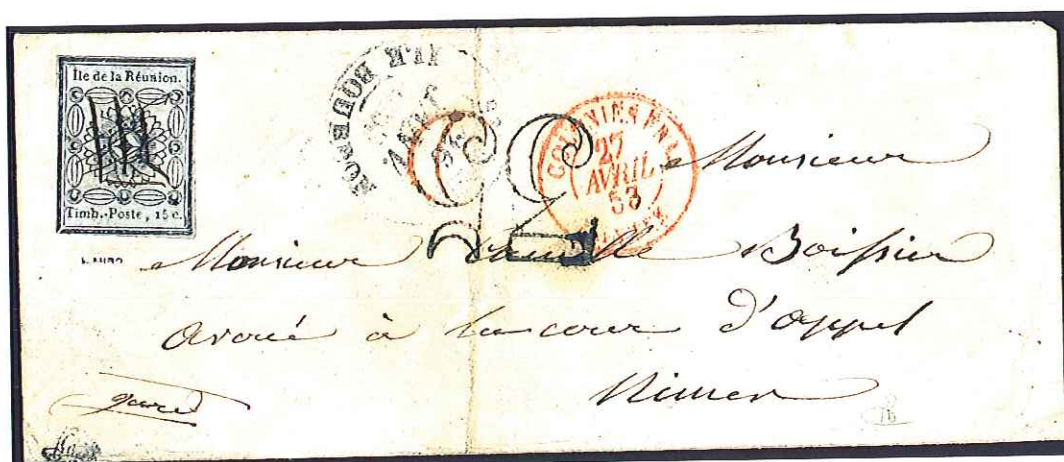 Île de la Réunion.
Timb.-Poste, 15 c.
COLONIES FRA
27
AVRIL
53
Monsieur
Monsieur Boissier
avoué à la cour d'appel
Nimes